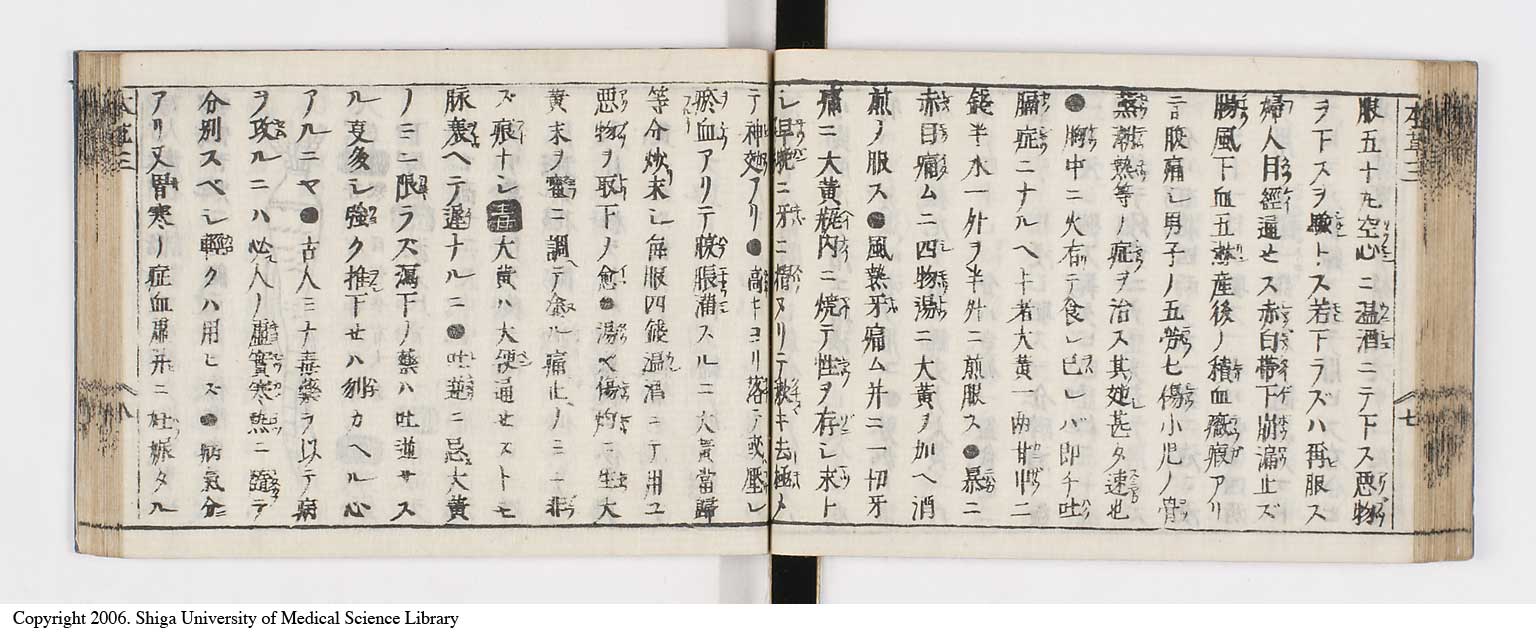 服五十丸空心ニ温酒ニテ下ス悪物
ヲ下スヲ驗トス若下ラズハ再服ス
婦人月經通セス赤白帶下崩漏止ズ
腸風下血五淋産後ノ積血癥瘕アリ
言腹痛シ男子ノ五勞七傷小児ノ骨
蒸潮熱等ノ症ヲ治ス其効甚タ速也
●胸中ニ火有テ食シ已レバ即チ吐
膈症ニナルヘト若大黄一两甘艸二
錢半水一升ヲ半升ニ煎服ス●暴ニ
赤目痛ムニ四物湯ニ大黄ヲ加ヘ酒
煎ノ服ス●風熱牙痛ム并ニ一切牙
痛ニ大黄瓶内ニ焼テ性ヲ存シ末ト
シ早晩ニ牙ニ揩ヌリテ漱キ去極メ
テ神効アリ●高キヨリ落テ或壓レ
瘀血アリテ腹脹滿スルニ大黄當歸
等分炒末シ毎服四錢温酒ニテ用ユ
悪物ヲ取下ノ愈●湯ヘ傷灼ニ生大
黄末ヲ蜜ニ調テ塗ル痛止ノミニ非
ズ痕ナシ 大黄ハ大便通セストモ
脉衰ヘテ遲ナルニ●吐逆ニ忌大黄
ノミニ限ラス瀉下ノ藥ハ吐逆サス
ル夏後シ強ク推下セハ刎カヘル心
アルニヤ●古人ミナ毒藥ヲ以テ病
ヲ攻ルニハ必人ノ虚實寒熱ニ隨テ
分別スベシ輕クハ用ヒズ●病氣分
アリ又胃寒ノ症血虚并ニ妊娠タル
本草三
七
本草三
八
Copyright 2006. Shiga University of Medical Science Library